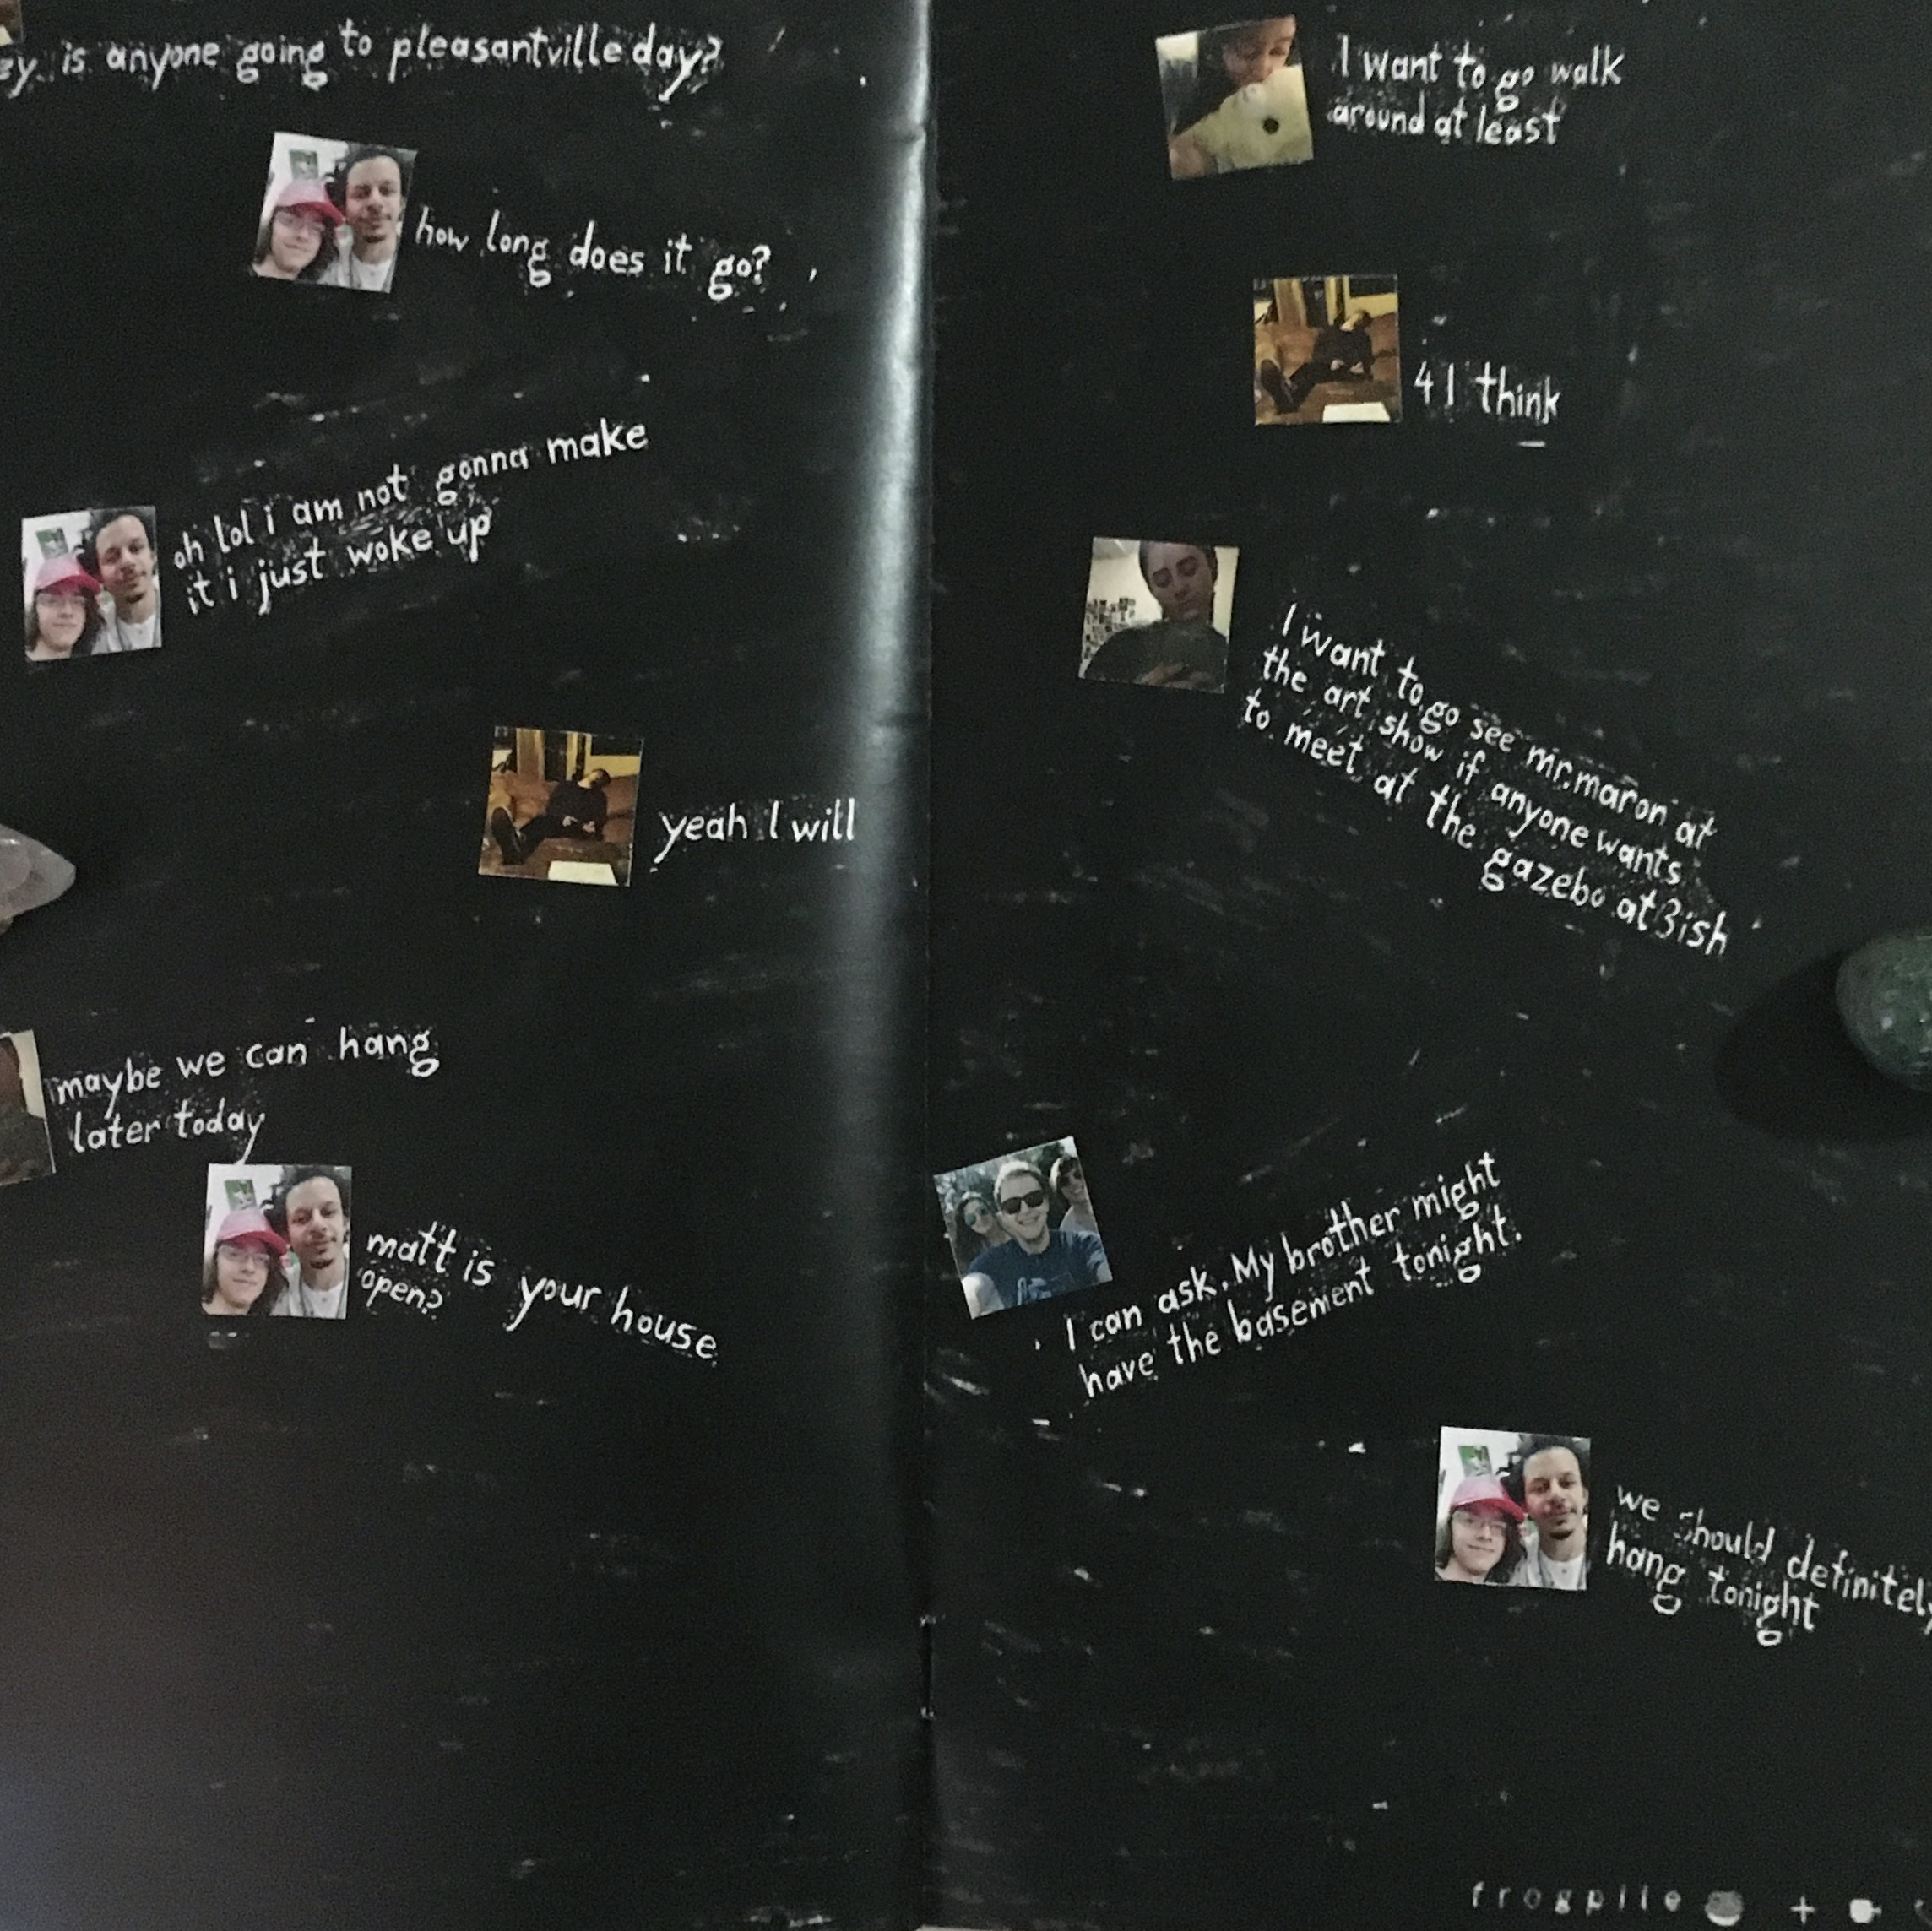 is anyone going to pleasantville day?
how long does it go?
oh lol i am not gonna make
it i just woke up
yeah I will
maybe we can hang
later today
matt is your house
open?
I want to go walk
around at least
4 I think
I want to go see mr.maron at
the art show if anyone wants
to meet at the gazebo at 3ish
I can ask. My brother might
have the basement tonight.
we should definitely
hang tonight
frogpile +